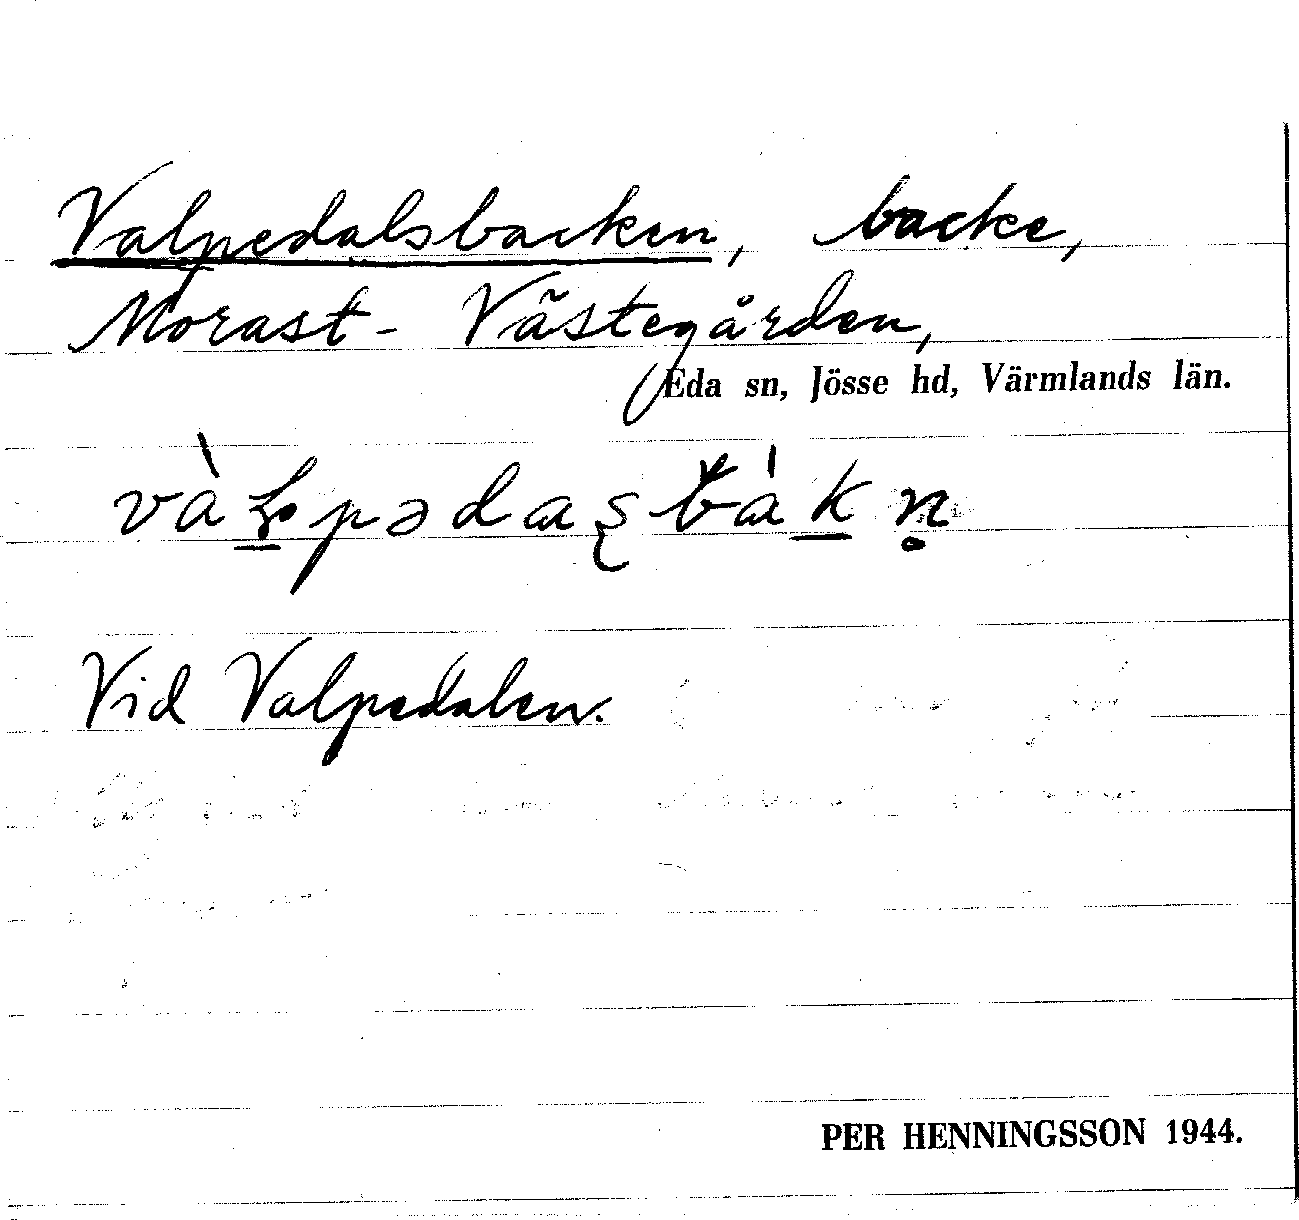 Valpedalsbacken, backe,
Morast - Västegården,
Eda sn, Jösse hd, Värmlands län.
Vid Valpedalen.
PER HENNINGSSON 1944.